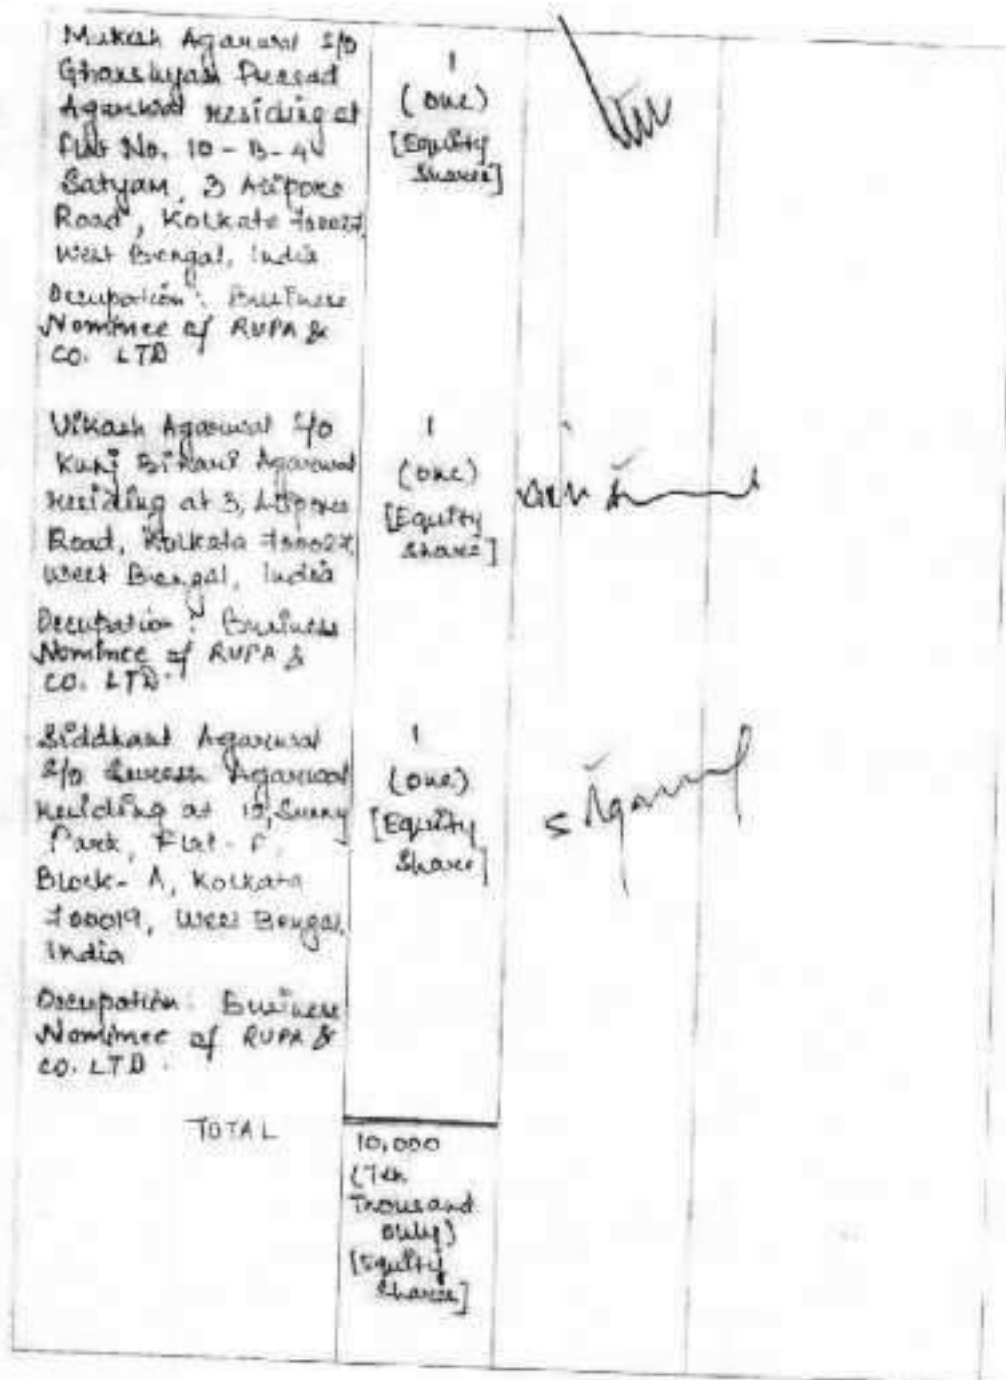 Mukesh Agarwal S/o
Ghanshyam Prasad
Agarwal residing at
Flat No. 10-B-4
Satyam, 3 Alipore
Road, Kolkata 700027,
West Bengal, India
Occupation: Business
Nominee of RUPA &
CO. LTD
1
(one)
[Equity
Share]
Vikash Agarwal S/o
Kunj Bihari Agarwal
residing at 3, Alipore
Road, Kolkata 700027,
West Bengal, India
Occupation: Business
Nominee of RUPA &
CO. LTD.
1
(one)
[Equity
Share]
Siddhant Agarwal
S/o Suresh Agarwal
residing at 12, Sunny
Park, Flat-F,
Block-A, Kolkata
700019, West Bengal,
India
Occupation: Business
Nominee of RUPA &
CO. LTD.
1
(one)
[Equity
Share]
S Agarwal
TOTAL
10,000
(Ten
Thousand
Only)
[Equity
Shares]